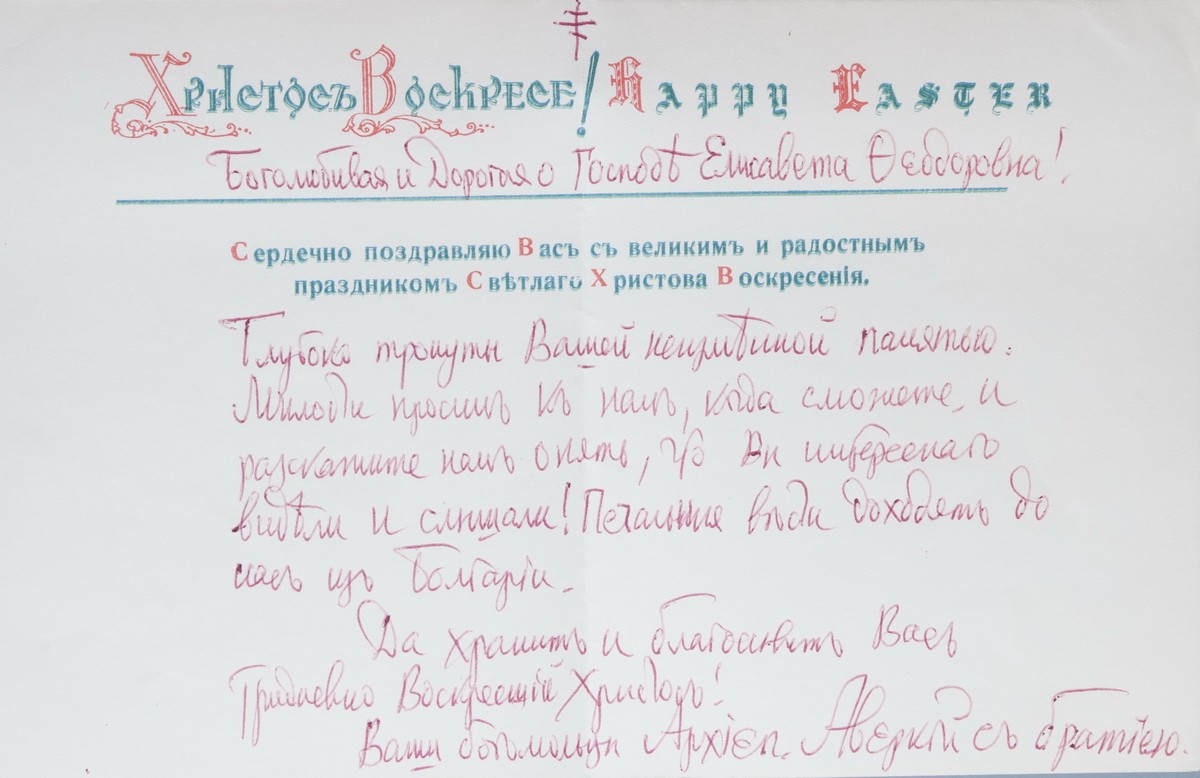 Христосъ Воскресе! Happy Easter
Боголюбивая и Дорогая о Господѣ Елисавета Ѳеодоровна!
Сердечно поздравляю Васъ съ великимъ и радостнымъ
праздникомъ Свѣтлаго Христова Воскресенія.
Глубоко тронуты Вашей неизмѣнной памятью.
Милости просимъ къ намъ, когда сможете, и
разскажите намъ опять, что Вы интереснаго
видѣли и слышали! Печальныя вѣсти доходятъ до
насъ изъ Болгаріи.
Да хранитъ и благословитъ Васъ
Тридневно Воскресшій Христосъ!
Ваши богомольцы Архіеп. Аверкій съ братіею.